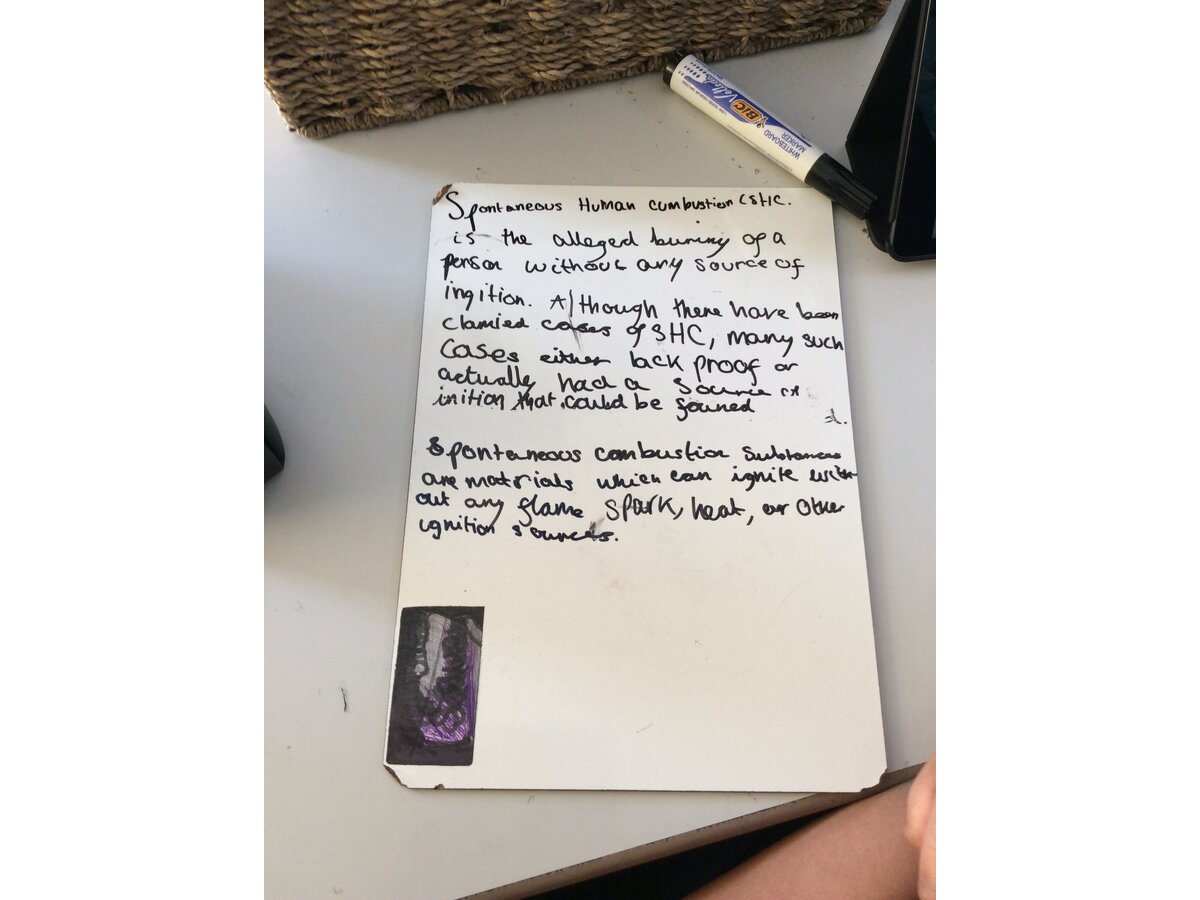 BIC Velleda
WHITEBOARD
MARKER
Spontaneous Human cumbustion CSHC.
is the alleged burning of a
person without any source of
ingition. Although there have been
clamied cases of SHC, many such
cases either lack proof or
actually had a source of
inition that could be founed
Spontaneous combustion substances
are materials which can ignite with-
out any flame spark, heat, or other
ignition sources.